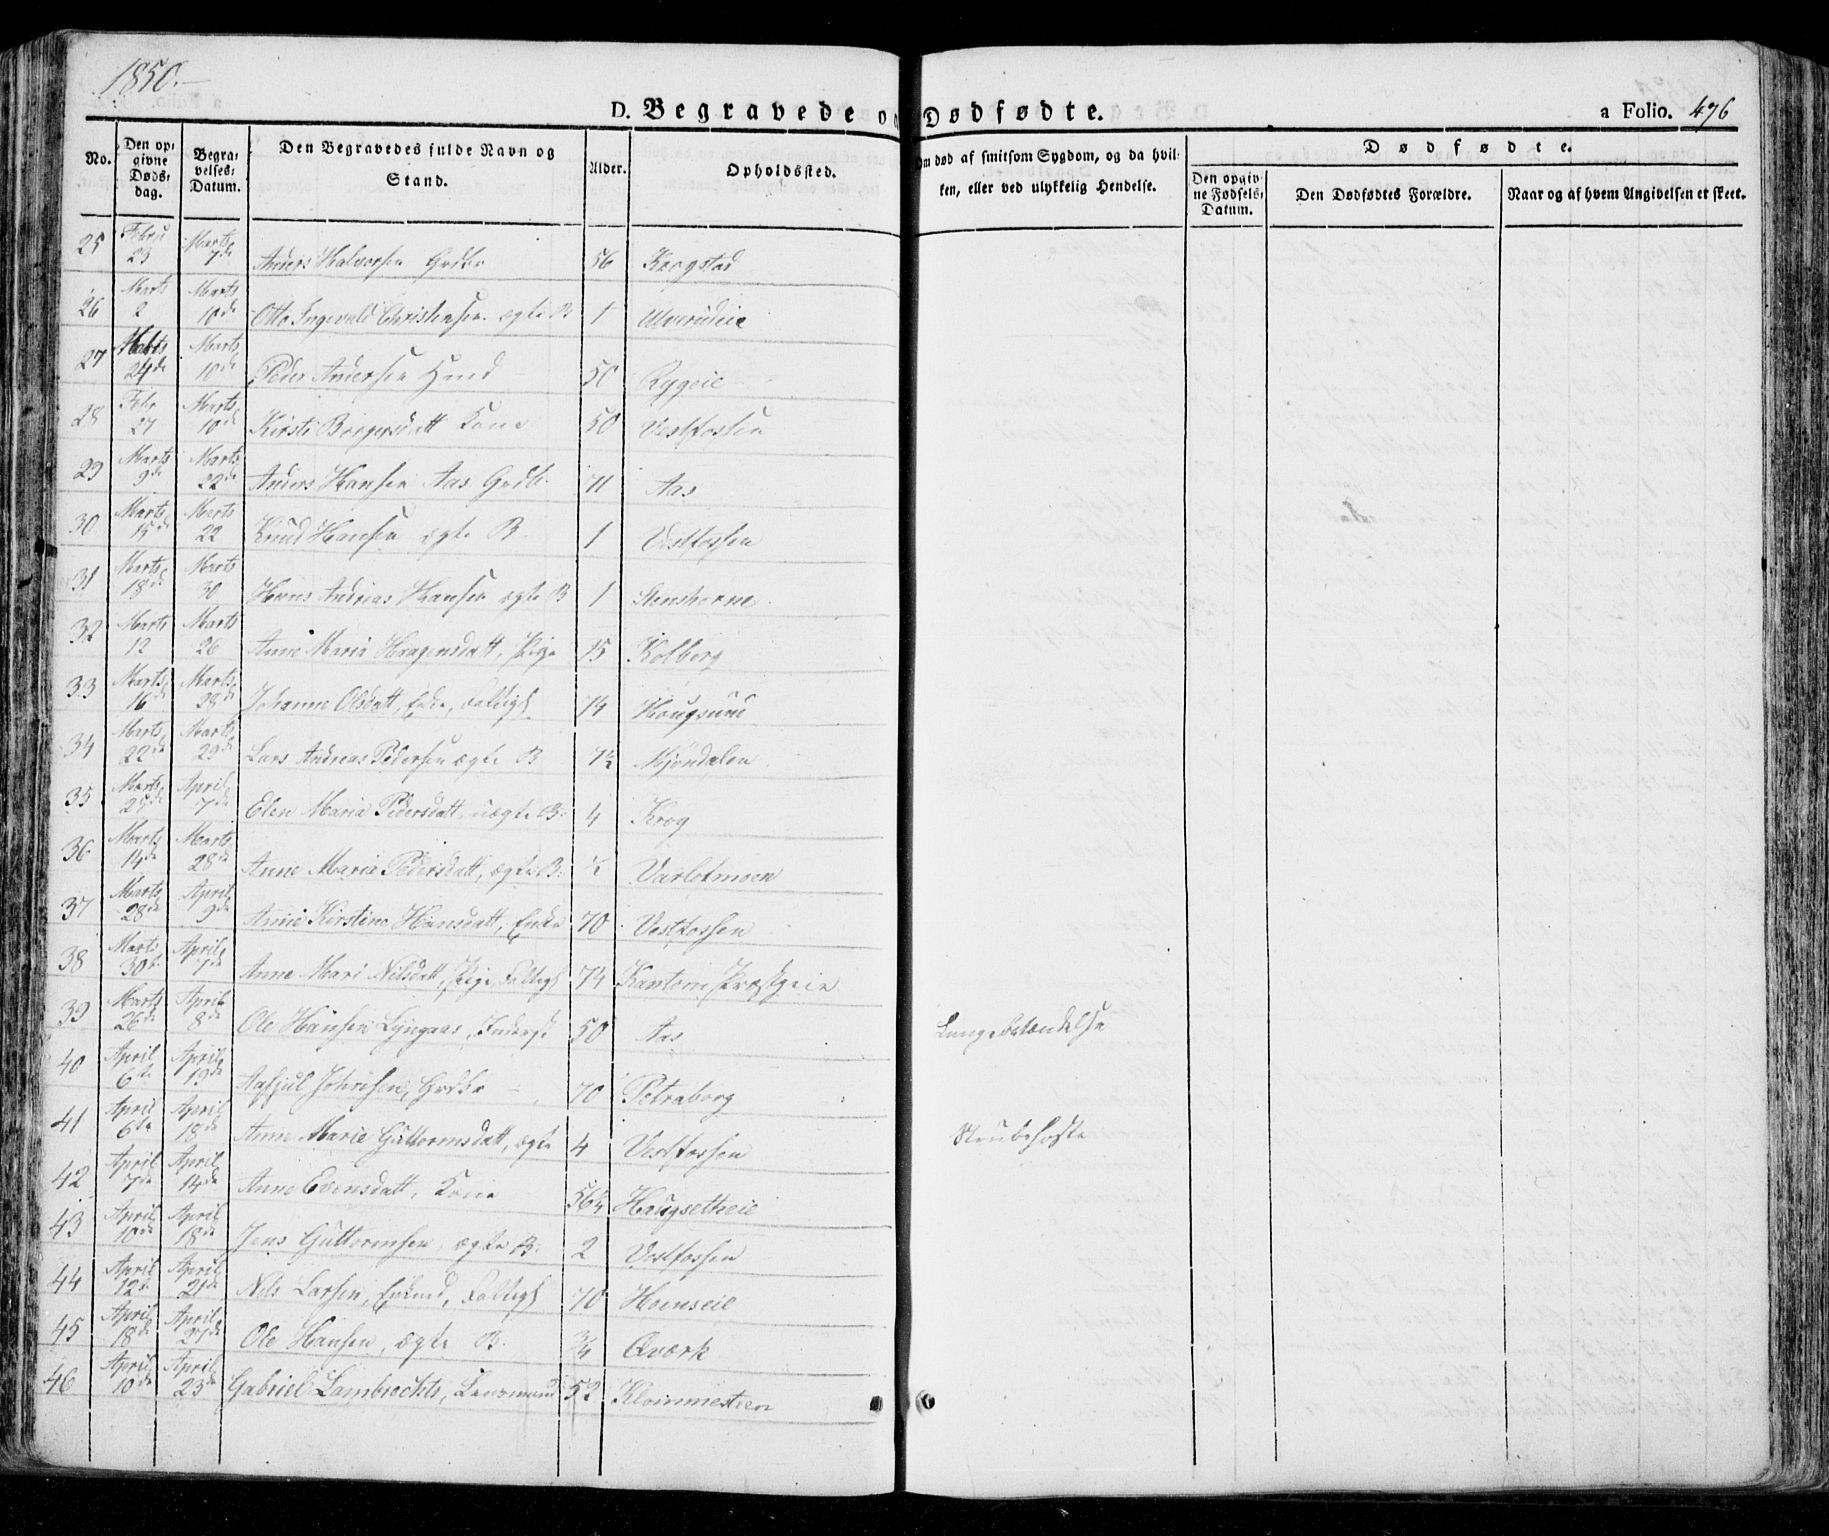 1850.
D. Begravede og Dødfødte.
a Folio. 476
No. | Den opgivne Døds-dag. | Begravelses-Datum. | Den Begravedes fulde Navn og Stand. | Alder. | Opholdssted. | Om død af smitsom Sygdom, og da hvilken, eller ved ulykkelig Hendelse. | Dødfødte.
Den opgivne Fødsels-Datum. | Den Dødfødtes Forældre. | Naar og af hvem Angivelsen et skeet.
25 Febru 23 Marts 7de Anders Halvorsen Grdbr 56 Krogstad
26 Marts 2 Marts 10de Otto Ingevald Christensen ægte B 1 Ulverudeie
27 24de Marts 10de Peder Andersen Hund 50 Rygeie
28 Febr 27 Marts 10de Kirsti Borgersdatt Kone 50 Vestfossen
29 Marts 9de Marts 22de Anders Hansen Aas Grdb. 71 Aas
30 Marts 15de Marts 22 Knud Hansen ægte B. 1 Vestfossen
31 Marts 18de Marts 30 Hans Andreas Hansen ægte B 1 Stenshorne
32 Marts 12 Marts 26 Anne Maria Haagensdatt, Pige 15 Kolberg
33 Marts 16de Marts 28de Johanne Olsdatt, Enke, Fattigl 74 Hougsund
34 Marts 22de Marts 29de Lars Andreas Pedersen ægte B Mjøndalen
35 Marts April 7de Elen Maria Pedersdatt, uægte B. 4 Krog
36 Marts 14de Marts 28de Anne Maria Pedersdatt, ægte B. ½ Varlotmoen
37 Marts 28de April 9de Anne Kirstine Hansdatt, Enke 70 Vestfossen
38 Marts 30te April 7de Anne Mari Nilsdatt, Pige, Fattigl 74 Præstgeie
39 Marts 26de April 8de Ole Hansen Lyngaas, Inderst 50 Aas Lungebetændelse
40 April 6te April 19de Johnsen, Grdbr 70 Petraborg
41 April 6te April 18de Anne Marie Guttormsdatt, ægte 4 Vestfossen Strubehoste
42 April 7de April 14de Anne Evensdatt, Kone 56½ Haugsetheie
43 April 10de April 18de Jens Guttormsen ægte B. 2 Vestfossen
44 April 12te April 21de Nils Larsen, Enkmd, Fattigl 70 Hoenseie
45 April 18de April 27de Ole Hansen, ægte B. ¾ Qværk
46 April 10de April 23de Gabriel Lambrechts, Lensmand 52